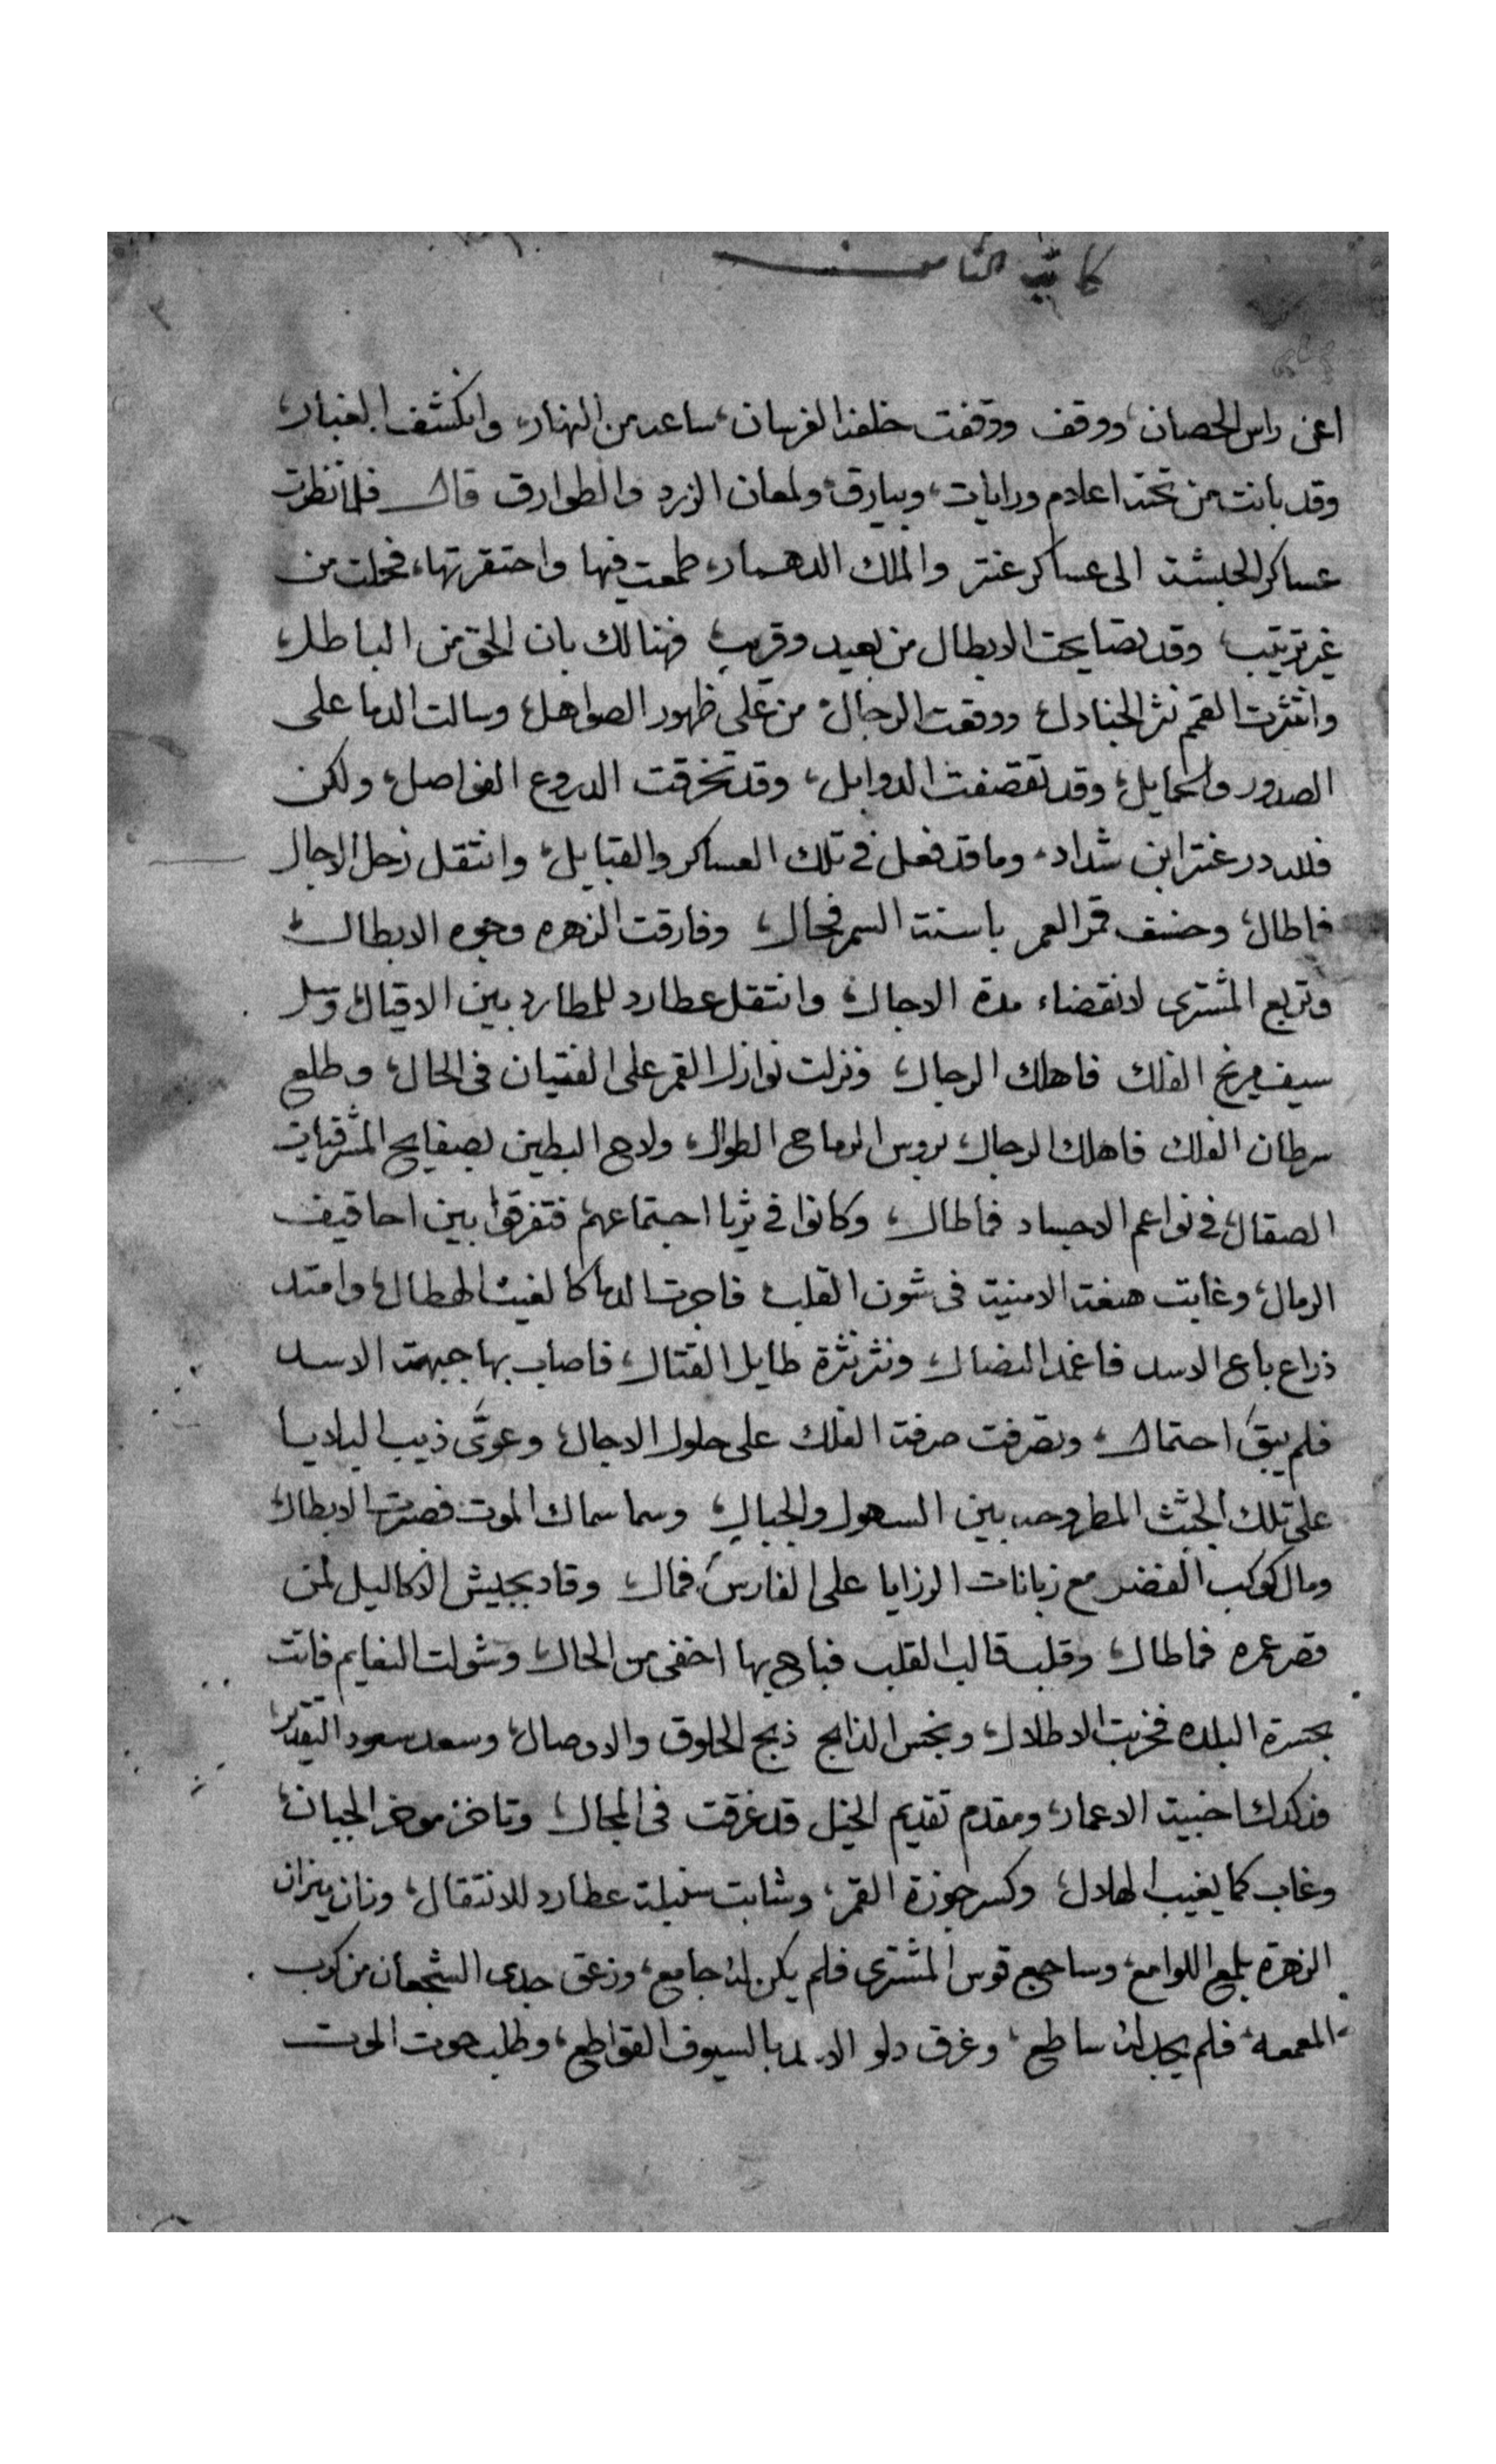 اعنى راس الحصان، ووقف ووقفت خلفه الفرسان، ساعه من النهار، وانكشف الغبار،
وقد بانت من تحته اعلام ورايات، وبيارق، ولمعان الزرد والطوارق قال فلما نظرت
عساكر الحبشة الى عساكر عنتر والملك الدهمار، طمعت فيها واحتقرتها، فحملت من
غير ترتيب، وقد تصايحت الابطال من بعيد وقريب، فهنالك بان الحق من الباطل،
وانتثرت القمم نثر الجنادل، ووقعت الرجال، من على ظهور الصواهل، وسالت الدما على
الصدور والحمايل، وقد تقصفت الدوابل، وقد تخرقت الدروع الفواصل، ولكن
فلله در عنتر ابن شداد، وما قد فعل فى تلك العساكر والقبايل، وانتقل زحل الاجال
فاطال، وخسف قمر العمر باسنة السمر فحال، وفارقت الزهره وجوه الابطال،
وتربع المشترى لانقضاء مدة الاجال، وانتقل عطارد للمطارد بين الاقيال، وسل
سيف مريخ الفلك فاهلك الرجال، ونزلت نوازل القمر على الفتيان فى الحال، وطلع
سرطان الفلك فاهلك الرجال، بروس الرماح الطوال، ولاح البطين بصفايح المشرفيات
الصقال، فى نواعم الاجساد فماطال، وكانوا فى ثريا اجتماعهم، فتفرقوا بين احاقيف
الرمال، وغابت هقعة الامنية فى شون القلب، فاجرت الدما كالغيث الهطال، وامتد
ذراع باع الاسد فاغمد النضال، ونثر نثرة طايل القتال، فاصاب بها جبهة الاسد
فلم يبق احتمال، وتصرفت صرفة الفلك على حلول الاجال، وعوى ذيب البلايا
على تلك الجثث المطروحه بين السهول والجبال، وسما سماك الموت فصرت الابطال
ومال كوكب الغضر مع زبانات الرزايا على الفارس فمال، وقاد بجيش الاكاليل لمن
قصر عمره فماطال، وقلب قالب القلب فباح بها اخفى من الحال، وشولت النعايم فاتت
بحسرة البلده فخربت الاطلال، ونحس الذابح ذبح الحلوق والاوصال، وسعد سعود التقدير
فدكدك اخبية الاعمار، ومقدم تقديم الخيل قد غرقت فى المجال، وتاخر موخر الجبان،
وغاب كما يغيب الهلال، وكسر جوزة القمر، وشابت سنبلة عطارد للانتقال، وزان ميزان
الزهرة بلمع اللوامع، وساجع قوس المشترى فلم يكن له جامع، وزعق جدى الشجعان من كرب
المعمعه، فلم يجد له ساطع، وغرق دلو بالسيوف القواطع، وطلب حوت الموت